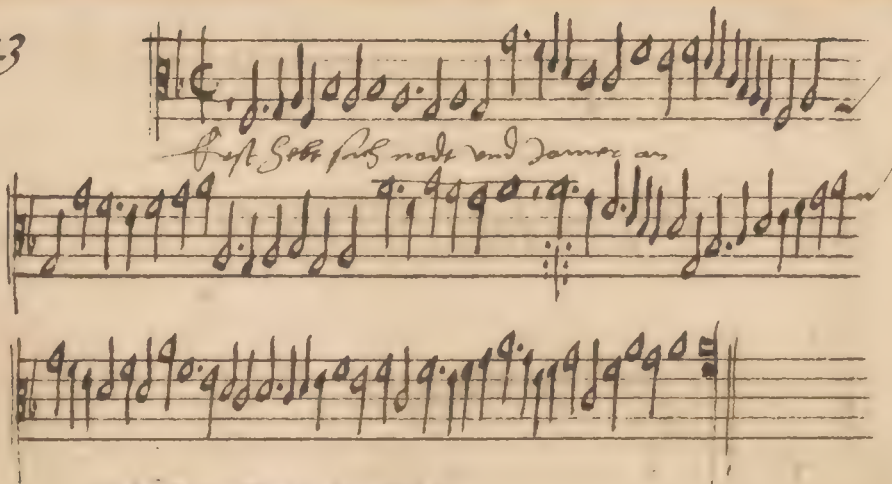 3
Erst hebt sich nodt vnd Jamer an